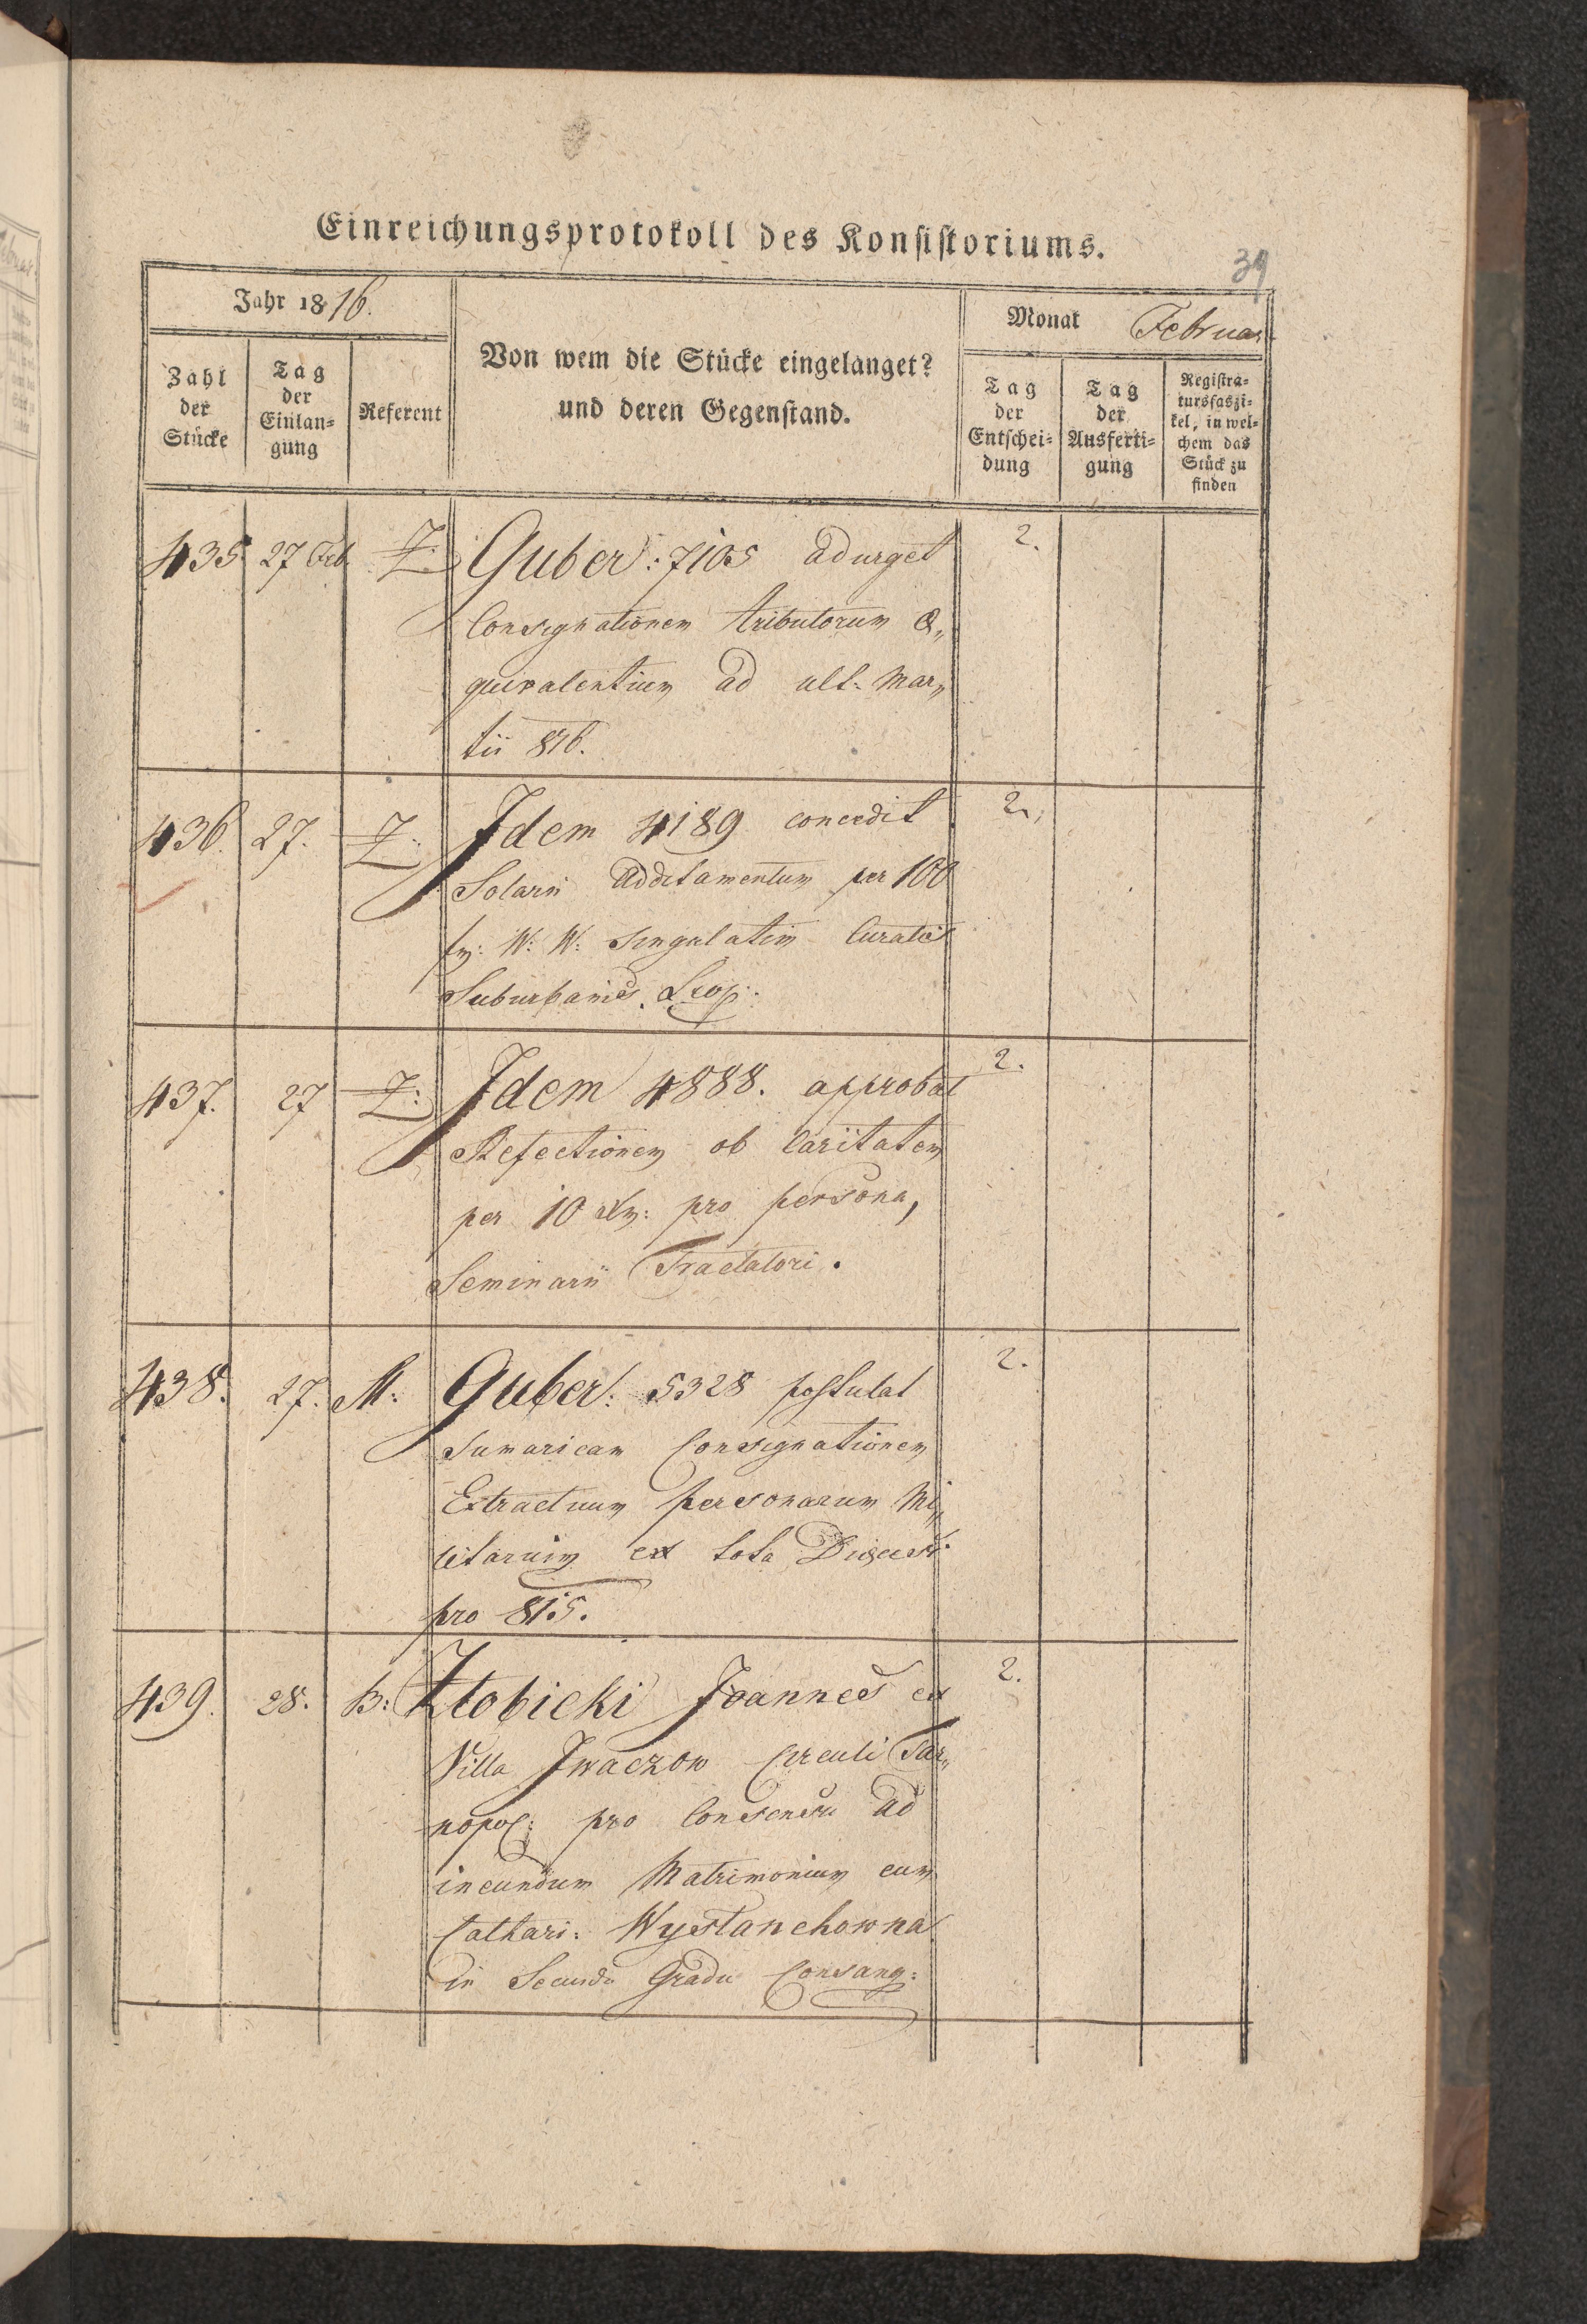 Einreichungsprotokoll des Konsistoriums.
39
Jahr 1816.
Von wem die Stücke eingelanget?
und deren Gegenstand.
Monat Februar
Zahl
der
Stücke
Tag
der
Einlan=
gung
Referent
Tag
der
Entschei=
dung
Tag
der
Ausferti=
gung
Registra=
tursfaszi=
kel, in wel=
chem das
Stück zu
finden
435. 27 Feb. Z: Guber: 7105 adurget 2.
Consignationem tributorum Æ„
quivalentium ad ult: Mar„
tii 816.
436. 27. Z: Idem 4189 concedit 2.
Solarii additamentum per 100
fr: W: W: singulatim Curatis
Suburbanis Leop:
437. 27 Z: Idem 4888. approbat 2.
Refectionem ob Caritatem
per 10 xr: pro persona,
Seminarii Tractatori.
438. 27. M: Guber: 5328 postulat 2.
Sumaricam Consignationem
Extractuum personarum Mi„
litarium ex tota Diœcesi
pro 815.
439. 28. B: Złobicki Joannes ex 2.
Villa Iwaczow Circuli Tar„
nopol: pro Consensu ad
ineundum Matrimonium cum
Cathari: Wystanchowna
in Secundo Gradu Consang: